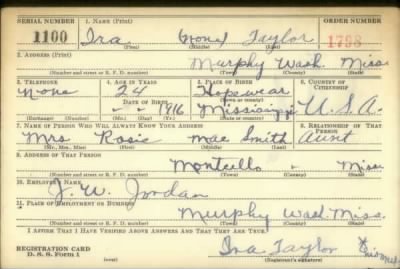 SERIAL NUMBER 1. NAME (Print) ORDER NUMBER
1100 Ira Taylor 1798
(First) (Middle) (Last)
2. ADDRESS (Print)
Murphy Wash. Miss
(Number and street or R. F. D. number) (Town) (County) (State)
3. TELEPHONE 4. AGE IN YEARS 5. PLACE OF BIRTH 6. COUNTRY OF CITIZENSHIP
None 24
(Town or county)
DATE OF BIRTH
1916 Mississippi U.S.A.
(Exchange) (Number) (Mo.) (Day) (Yr.) (State or country)
7. NAME OF PERSON WHO WILL ALWAYS KNOW YOUR ADDRESS 8. RELATIONSHIP OF THAT PERSON
Mrs Rosie Mae Smith Aunt
(Mr., Mrs., Miss) (First) (Middle) (Last)
9. ADDRESS OF THAT PERSON
Monticello - Miss
(Number and street or R. F. D. number) (Town) (County) (State)
10. EMPLOYER'S NAME
J. W. Jordan
11. PLACE OF EMPLOYMENT OR BUSINESS
Murphy Wash. Miss.
(Number and street or R. F. D. number) (Town) (County) (State)
I AFFIRM THAT I HAVE VERIFIED ABOVE ANSWERS AND THAT THEY ARE TRUE.
REGISTRATION CARD
D. S. S. Form 1 (over) Ira Taylor
(Registrant's signature)